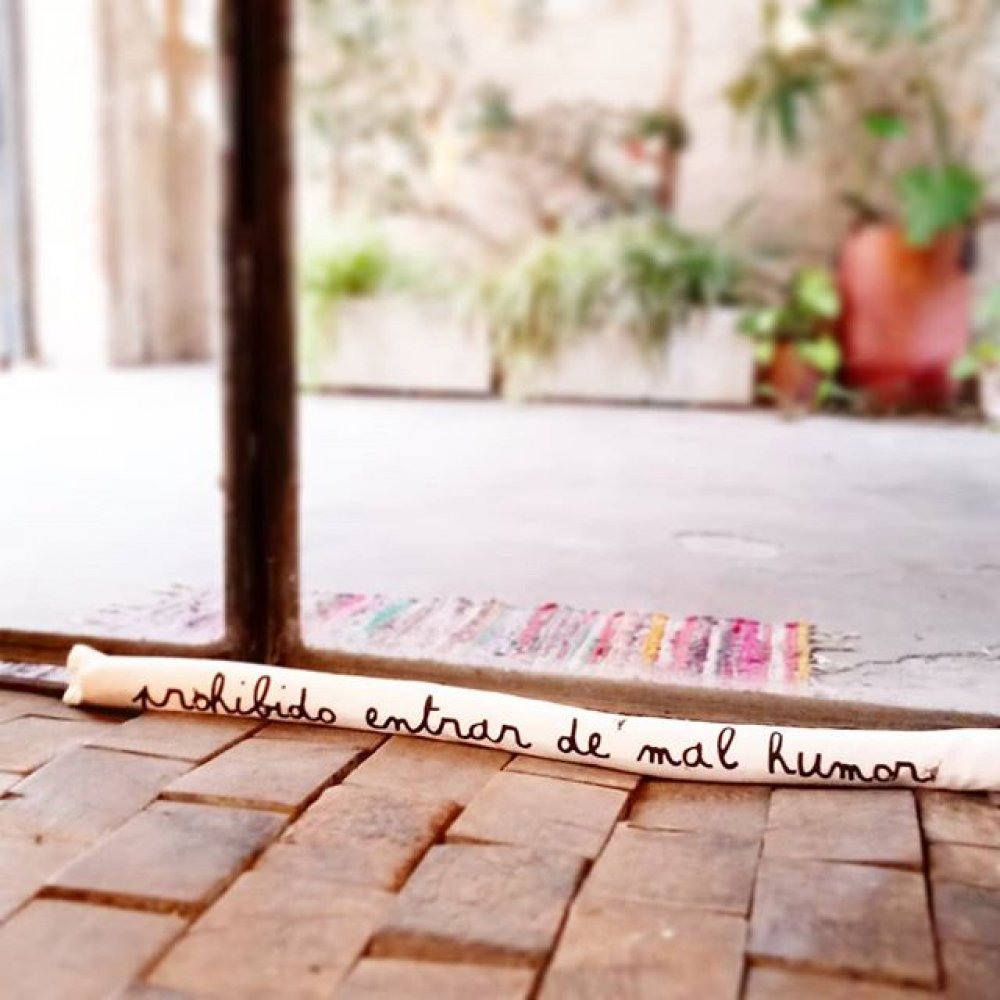 prohibido entrar de mal humor